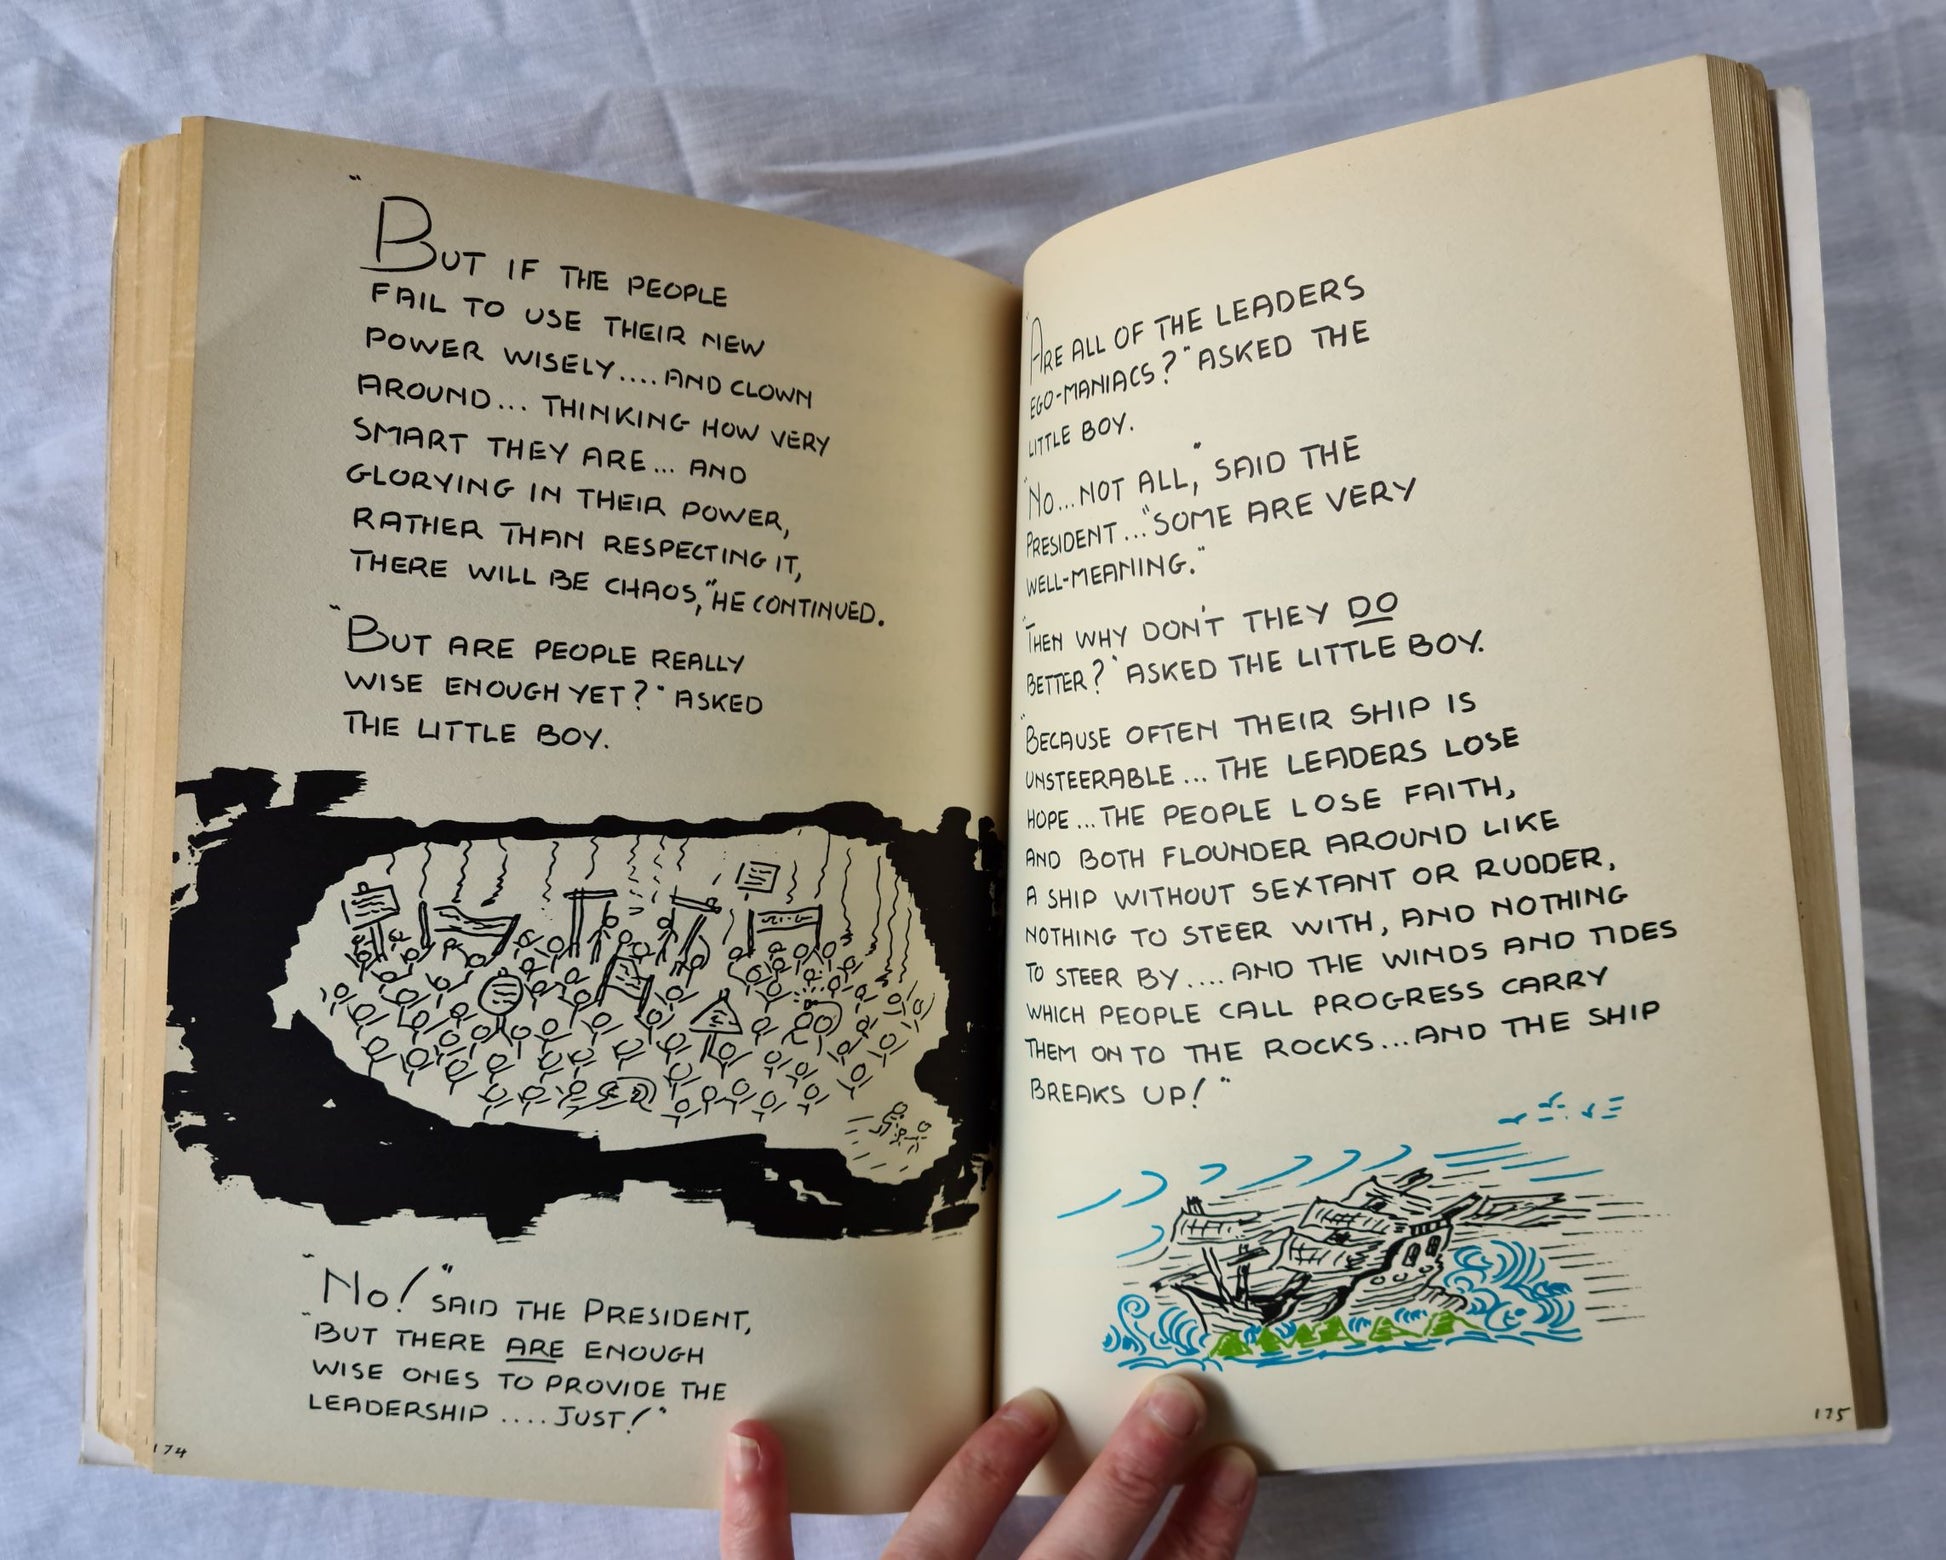 "BUT IF THE PEOPLE
FAIL TO USE THEIR NEW
POWER WISELY.... AND CLOWN
AROUND... THINKING HOW VERY
SMART THEY ARE... AND
GLORYING IN THEIR POWER,
RATHER THAN RESPECTING IT,
THERE WILL BE CHAOS," HE CONTINUED.
"BUT ARE PEOPLE REALLY
WISE ENOUGH YET?" ASKED
THE LITTLE BOY.
"NO!" SAID THE PRESIDENT,
"BUT THERE ARE ENOUGH
WISE ONES TO PROVIDE THE
LEADERSHIP .... JUST!"
174
"ARE ALL OF THE LEADERS
EGO-MANIACS?" ASKED THE
LITTLE BOY.
"NO... NOT ALL," SAID THE
PRESIDENT... "SOME ARE VERY
WELL-MEANING."
"THEN WHY DON'T THEY DO
BETTER?" ASKED THE LITTLE BOY.
"BECAUSE OFTEN THEIR SHIP IS
UNSTEERABLE... THE LEADERS LOSE
HOPE... THE PEOPLE LOSE FAITH,
AND BOTH FLOUNDER AROUND LIKE
A SHIP WITHOUT SEXTANT OR RUDDER,
NOTHING TO STEER WITH, AND NOTHING
TO STEER BY.... AND THE WINDS AND TIDES
WHICH PEOPLE CALL PROGRESS CARRY
THEM ON TO THE ROCKS... AND THE SHIP
BREAKS UP!"
175